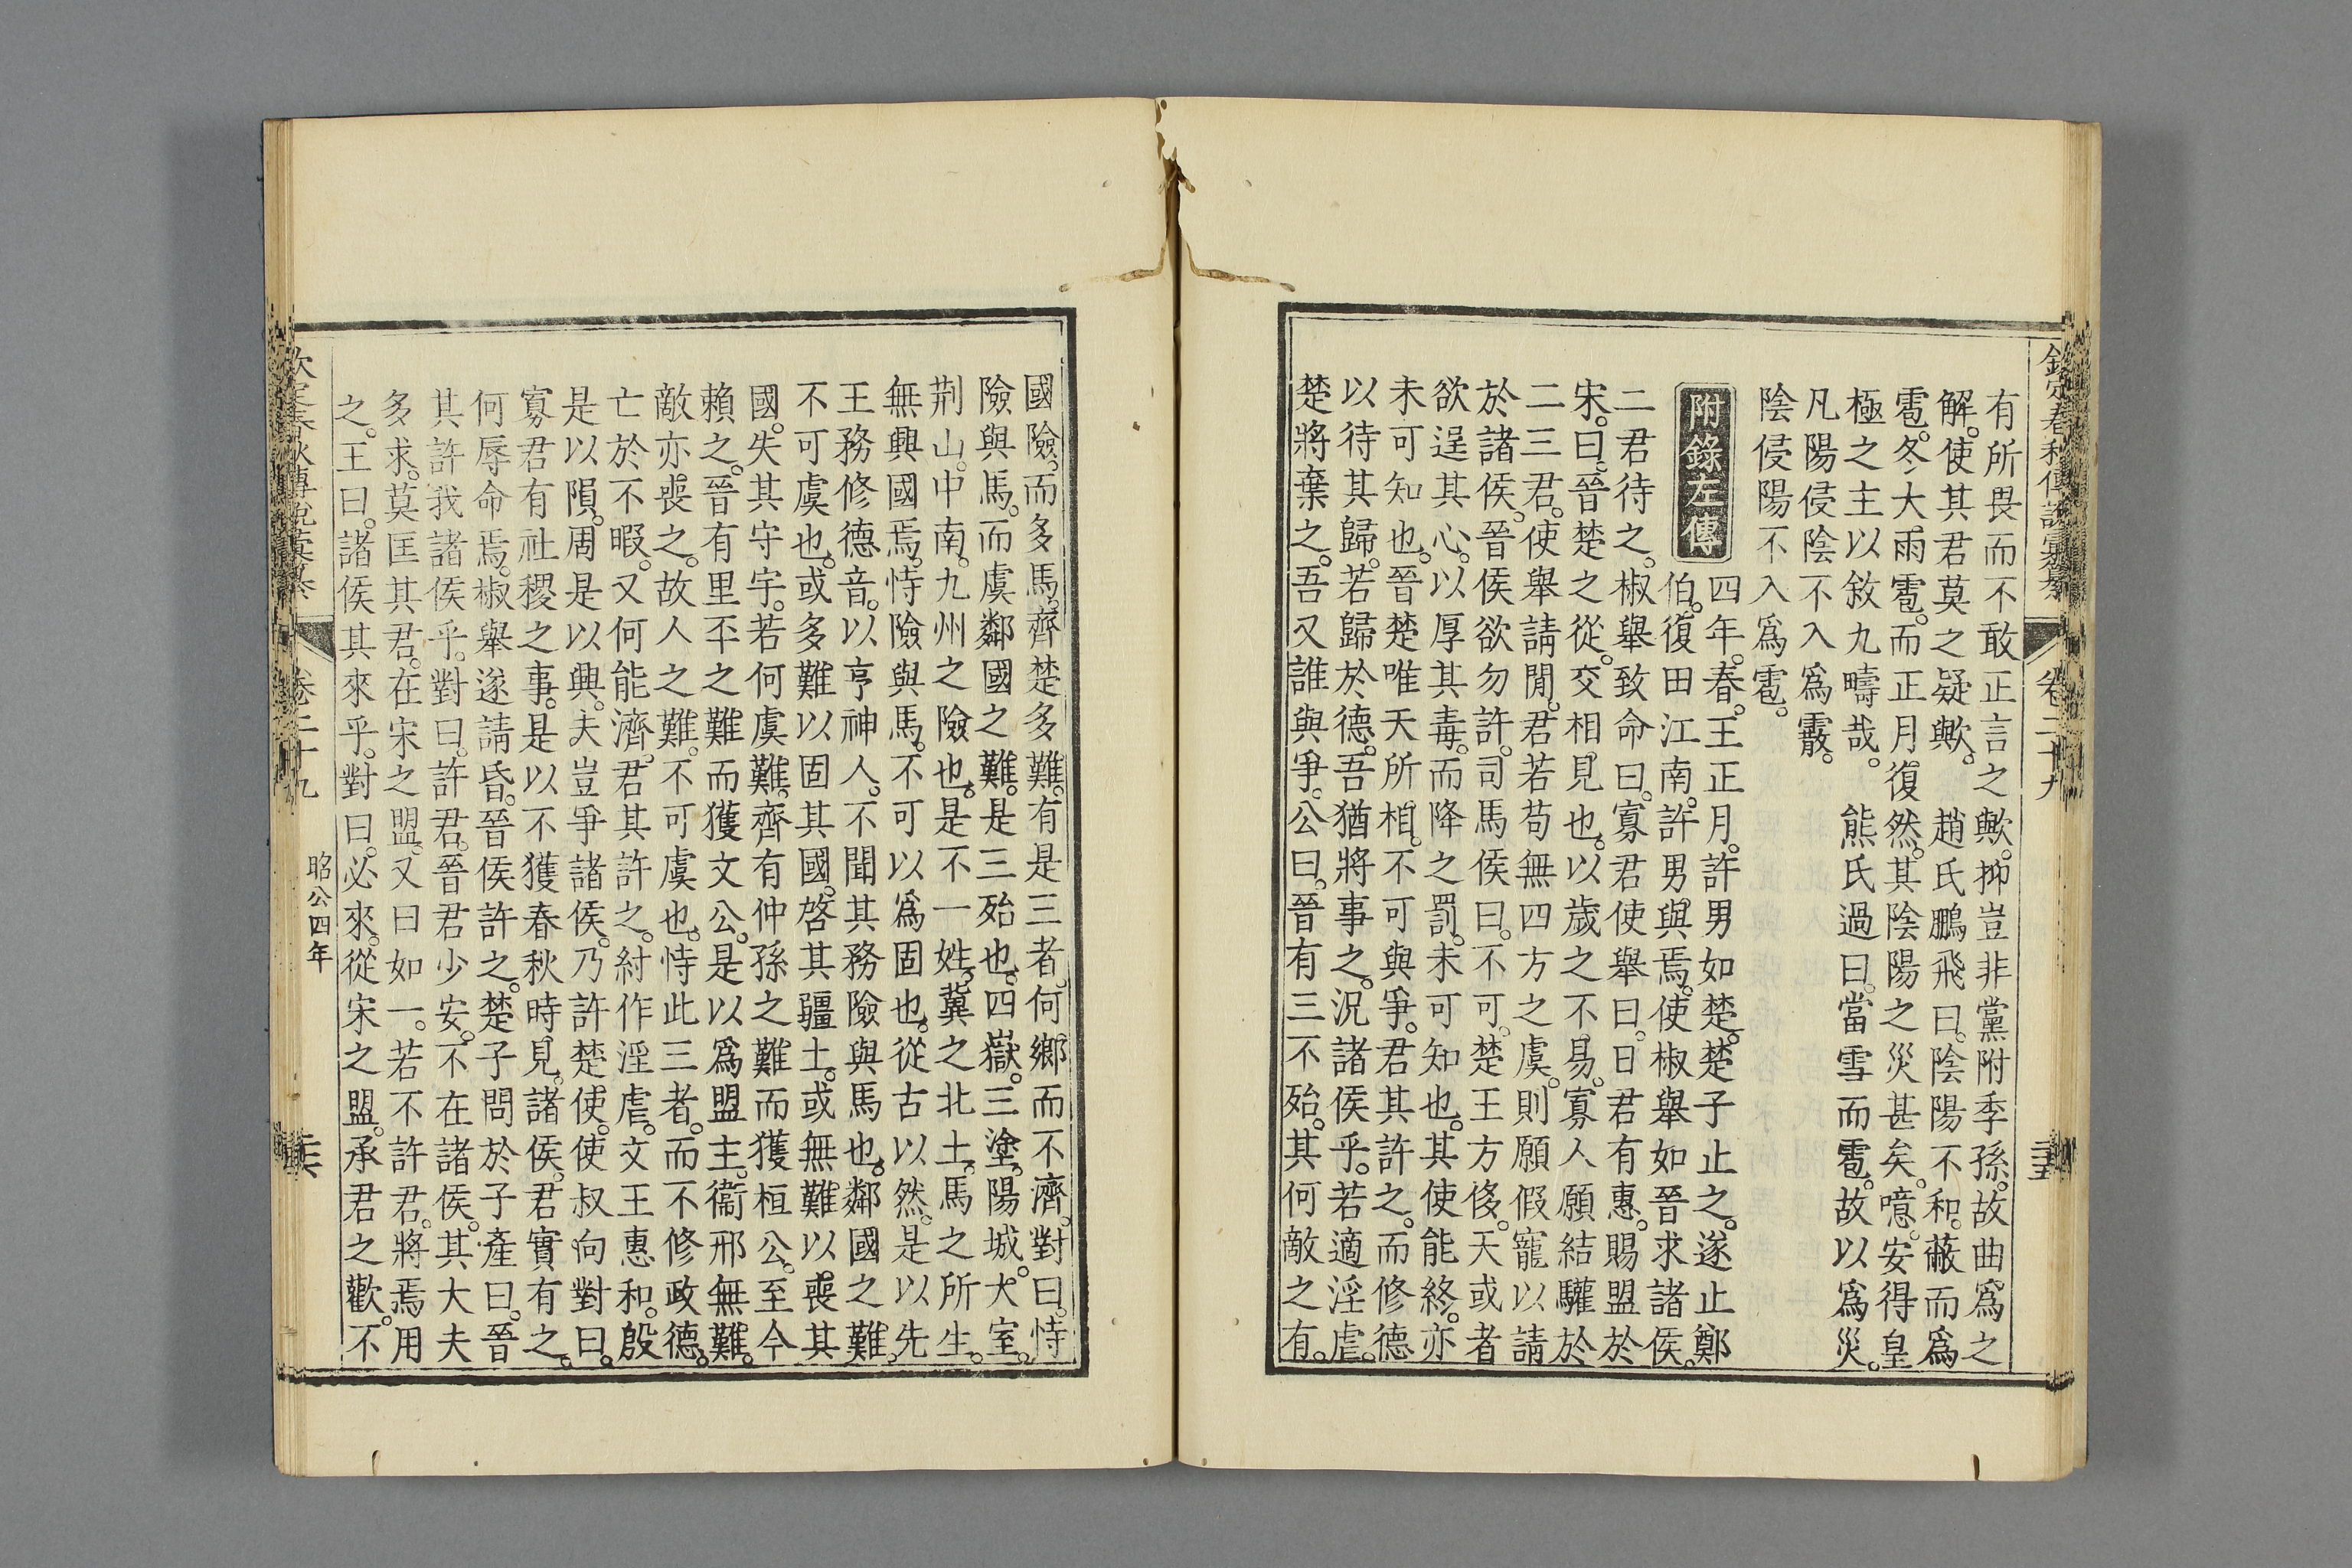 欽定春秋傳說彙纂 卷二十九 三五
有所畏而不敢正言之歟。抑豈非黨附季孫。故曲爲之
解。使其君莫之疑歟。 趙氏鵬飛曰。陰陽不和。蔽而爲
雹。冬大雨雹。而正月復然。其陰陽之災甚矣。噫。安得皇
極之主以敘九疇哉。 熊氏過曰。當雪而雹。故以爲災。
凡陽侵陰不入爲霰。
陰侵陽不入爲雹。
附錄左傳 四年。春。王正月。許男如楚。楚子止之。遂止鄭
伯。復田江南。許男與焉。使椒舉如晉求諸侯。
二君待之。椒舉致命曰。寡君使舉曰。日君有惠。賜盟於
宋。曰。晉楚之從。交相見也。以歲之不易。寡人願結驩於
二三君。使舉請閒。君若苟無四方之虞。則願假寵以請
於諸侯。晉侯欲勿許。司馬侯曰。不可。楚王方侈。天或者
欲逞其心。以厚其毒。而降之罰。未可知也。其使能終。亦
未可知也。晉楚唯天所相。不可與爭。君其許之。而修德
以待其歸。若歸於德。吾猶將事之。況諸侯乎。若適淫虐。
楚將棄之。吾又誰與爭。公曰。晉有三不殆。其何敵之有。
國險。而多馬。齊楚多難。有是三者。何鄉而不濟。對曰。恃
險與馬。而虞鄰國之難。是三殆也。四嶽。三塗。陽城。大室。
荆山。中南。九州之險也。是不一姓。冀之北土。馬之所生。
無興國焉。恃險與馬。不可以爲固也。從古以然。是以先
王務修德音。以亨神人。不聞其務險與馬也。鄰國之難。
不可虞也。或多難以固其國。啓其疆土。或無難以喪其
國。失其守宇。若何虞難。齊有仲孫之難而獲桓公。至今
賴之。晉有里丕之難而獲文公。是以爲盟主。衞邢無難。
敵亦喪之。故人之難。不可虞也。恃此三者。而不修政德。
亡於不暇。又何能濟。君其許之。紂作淫虐。文王惠和。殷
是以隕。周是以興。夫豈爭諸侯。乃許楚使。使叔向對曰。
寡君有社稷之事。是以不獲春秋時見。諸侯。君實有之。
何辱命焉。椒舉遂請昏。晉侯許之。楚子問於子產曰。晉
其許我諸侯乎。對曰。許君。晉君少安。不在諸侯。其大夫
多求。莫匡其君。在宋之盟。又曰如一。若不許君。將焉用
之。王曰。諸侯其來乎。對曰。必來。從宋之盟。承君之歡。不
欽定春秋傳說彙纂 卷二十九 昭公四年 三六